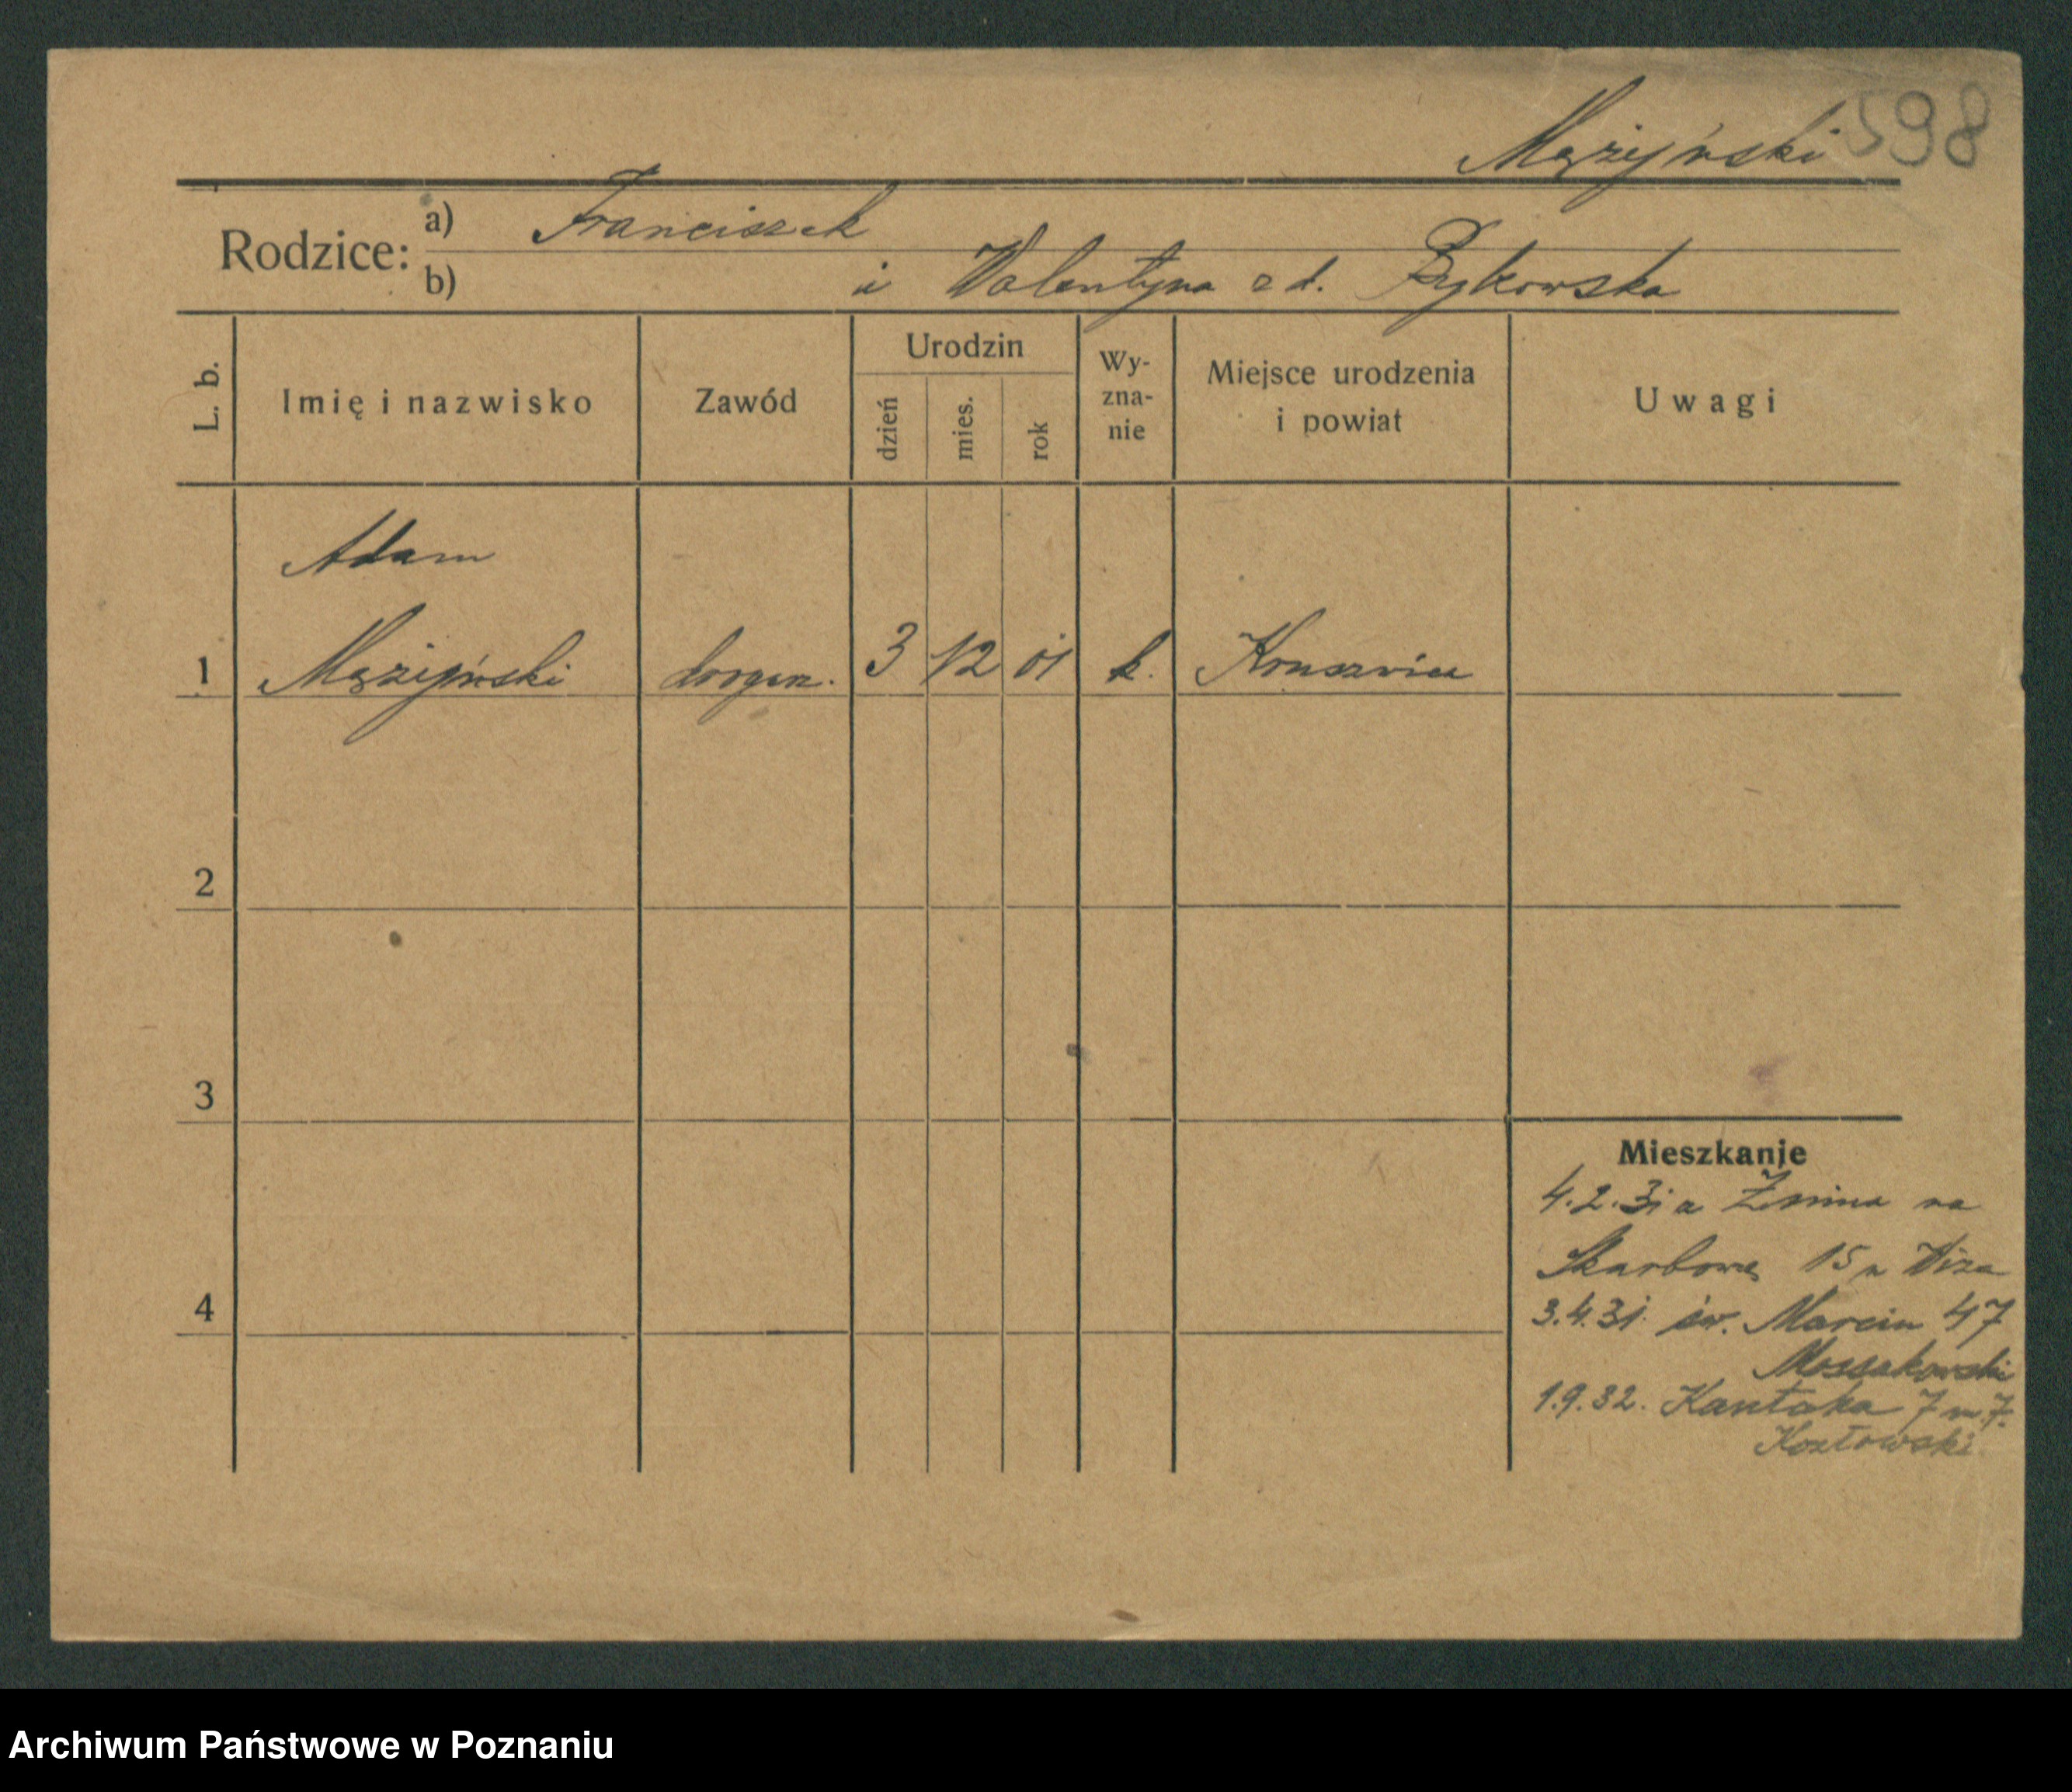 Mążyński 598
Rodzice: a) Franciszek
b) i Walentyna z d. Bykowska
L. b.
Imię i nazwisko
Zawód
Urodzin
dzień
mies.
rok
Wy-
zna-
nie
Miejsce urodzenia
i powiat
Uwagi
Adam
1 Mążyński drogerz. 3 12 01 k. Kruszwica
2
3
4
Mieszkanie
4.2.31 z Żnina na
Skarbową 15 u Wiza
3.4.31. św. Marcin 47
Mossakowski
1.9.32. Kantaka 7 m. 7.
Kozłowski
Archiwum Państwowe w Poznaniu